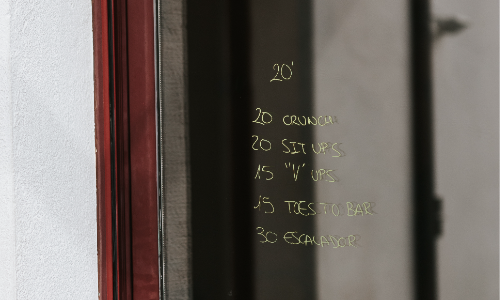 20'
20 CRUNCH
20 SIT UPS
15 "V" UPS
15 TOES TO BAR
30 ESCALADOR